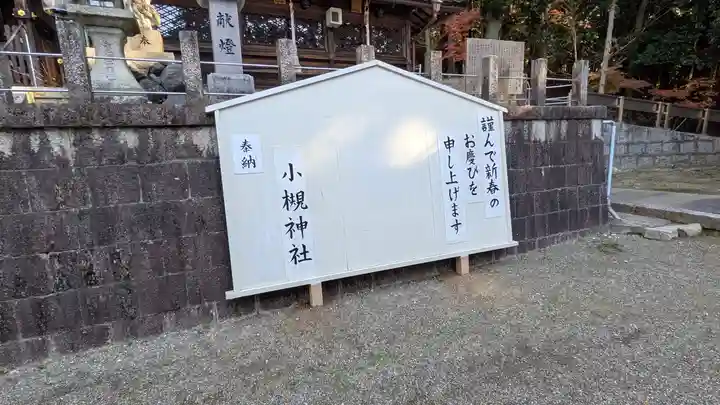 謹んで新春の
お慶びを
申し上げます
奉納
小槻神社
献燈
奉